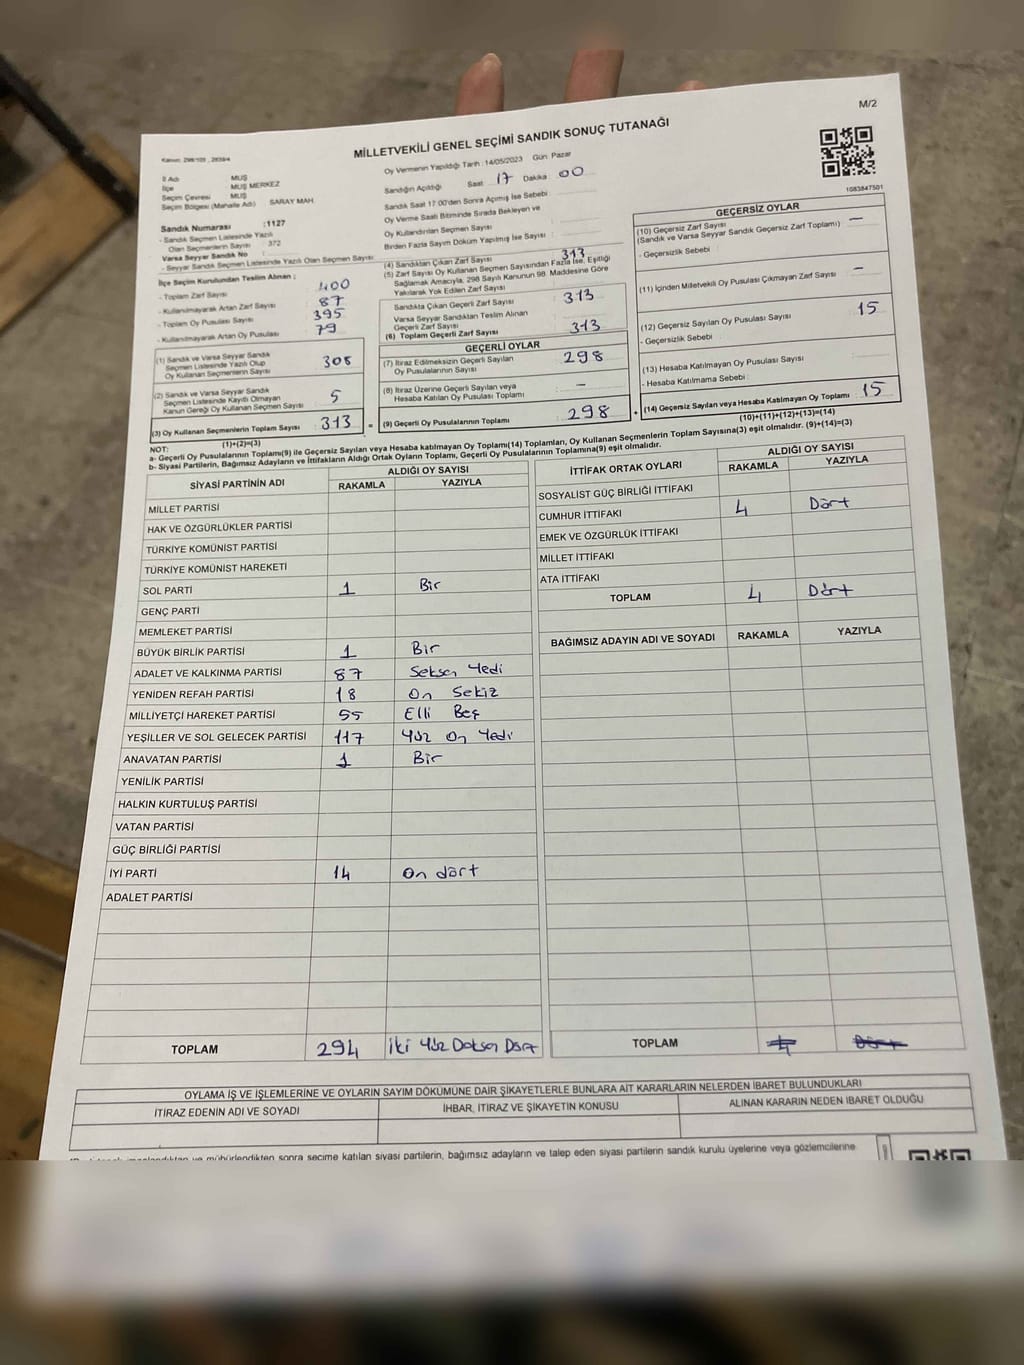 M/2
MİLLETVEKİLİ GENEL SEÇİMİ SANDIK SONUÇ TUTANAĞI
İl Adı : MUŞ
İlçe : MUŞ MERKEZ
Seçim Çevresi : MUŞ
Seçim Bölgesi (Mahalle Adı) SARAY MAH.
Sandık Numarası :1127
- Sandık Seçmen Listesinde Yazılı
Olan Seçmenlerin Sayısı : 372
Varsa Seyyar Sandık No :
- Seyyar Sandık Seçmen Listesinde Yazılı Olan Seçmen Sayısı:
İlçe Seçim Kurulundan Teslim Alınan ;
- Toplam Zarf Sayısı : 400
- Kullanılmayarak Artan Zarf Sayısı : 87
- Toplam Oy Pusulası Sayısı : 395
- Kullanılmayarak Artan Oy Pusulası : 79
(1) Sandık ve Varsa Seyyar Sandık
Seçmen Listesinde Yazılı Olup
Oy Kullanan Seçmenlerin Sayısı : 308
(2) Sandık ve Varsa Seyyar Sandık
Seçmen Listesinde Kaydı Olmayan
Kanun Gereği Oy Kullanan Seçmen Sayısı : 5
(3) Oy Kullanan Seçmenlerin Toplam Sayısı : 313
(1)+(2)=(3)
Oy Vermenin Yapıldığı Tarih :14/05/2023 Gün: Pazar
Sandığın Açıldığı Saat 17 Dakika 00
Sandık Saat 17:00'den Sonra Açılmış İse Sebebi :
Oy Verme Saati Bitiminde Sırada Bekleyen ve
Oy Kullandırılan Seçmen Sayısı :
Birden Fazla Sayım Döküm Yapılmış İse Sayısı :
(4) Sandıktan Çıkan Zarf Sayısı : 313
(5) Zarf Sayısı Oy Kullanan Seçmen Sayısından Fazla İse, Eşitliği
Sağlamak Amacıyla; 298 Sayılı Kanunun 98. Maddesine Göre
Yakılarak Yok Edilen Zarf Sayısı :
Sandıkta Çıkan Geçerli Zarf Sayısı : 313
Varsa Seyyar Sandıktan Teslim Alınan
Geçerli Zarf Sayısı :
(6) Toplam Geçerli Zarf Sayısı : 313
GEÇERLİ OYLAR
(7) İtiraz Edilmeksizin Geçerli Sayılan
Oy Pusulalarının Sayısı : 298
(8) İtiraz Üzerine Geçerli Sayılan veya
Hesaba Katılan Oy Pusulası Toplamı : –
(9) Geçerli Oy Pusulalarının Toplamı : 298
1083847501
GEÇERSİZ OYLAR
(10) Geçersiz Zarf Sayısı : –
(Sandık ve Varsa Seyyar Sandık Geçersiz Zarf Toplamı)
- Geçersizlik Sebebi :
(11) İçinden Milletvekili Oy Pusulası Çıkmayan Zarf Sayısı : –
(12) Geçersiz Sayılan Oy Pusulası Sayısı : 15
- Geçersizlik Sebebi :
(13) Hesaba Katılmayan Oy Pusulası Sayısı :
- Hesaba Katılmama Sebebi :
(14) Geçersiz Sayılan veya Hesaba Katılmayan Oy Toplamı : 15
(10)+(11)+(12)+(13)=(14)
NOT:
a- Geçerli Oy Pusulalarının Toplamı(9) ile Geçersiz Sayılan veya Hesaba katılmayan Oy Toplamı(14) Toplamları, Oy Kullanan Seçmenlerin Toplam Sayısına(3) eşit olmalıdır. (9)+(14)=(3)
b- Siyasi Partilerin, Bağımsız Adayların ve İttifakların Aldığı Ortak Oyların Toplamı, Geçerli Oy Pusulalarının Toplamına(9) eşit olmalıdır.
SİYASİ PARTİNİN ADI ALDIĞI OY SAYISI
RAKAMLA YAZIYLA
MİLLET PARTİSİ
HAK VE ÖZGÜRLÜKLER PARTİSİ
TÜRKİYE KOMÜNİST PARTİSİ
TÜRKİYE KOMÜNİST HAREKETİ
SOL PARTİ 1 Bir
GENÇ PARTİ
MEMLEKET PARTİSİ
BÜYÜK BİRLİK PARTİSİ 1 Bir
ADALET VE KALKINMA PARTİSİ 87 Seksen Yedi
YENİDEN REFAH PARTİSİ 18 On Sekiz
MİLLİYETÇİ HAREKET PARTİSİ 55 Elli Beş
YEŞİLLER VE SOL GELECEK PARTİSİ 117 Yüz On Yedi
ANAVATAN PARTİSİ 1 Bir
YENİLİK PARTİSİ
HALKIN KURTULUŞ PARTİSİ
VATAN PARTİSİ
GÜÇ BİRLİĞİ PARTİSİ
İYİ PARTİ 14 On dört
ADALET PARTİSİ
TOPLAM 294 İki Yüz Doksan Dört
İTTİFAK ORTAK OYLARI ALDIĞI OY SAYISI
RAKAMLA YAZIYLA
SOSYALİST GÜÇ BİRLİĞİ İTTİFAKI
CUMHUR İTTİFAKI 4 Dört
EMEK VE ÖZGÜRLÜK İTTİFAKI
MİLLET İTTİFAKI
ATA İTTİFAKI
TOPLAM 4 Dört
BAĞIMSIZ ADAYIN ADI VE SOYADI RAKAMLA YAZIYLA
TOPLAM
OYLAMA İŞ VE İŞLEMLERİNE VE OYLARIN SAYIM DÖKÜMÜNE DAİR ŞİKAYETLERLE BUNLARA AİT KARARLARIN NELERDEN İBARET BULUNDUKLARI
İTİRAZ EDENİN ADI VE SOYADI İHBAR, İTİRAZ VE ŞİKAYETİN KONUSU ALINAN KARARIN NEDEN İBARET OLDUĞU
mühürlendikten sonra seçime katılan siyasi partilerin, bağımsız adayların ve talep eden siyasi partilerin sandık kurulu üyelerine veya gözlemcilerine